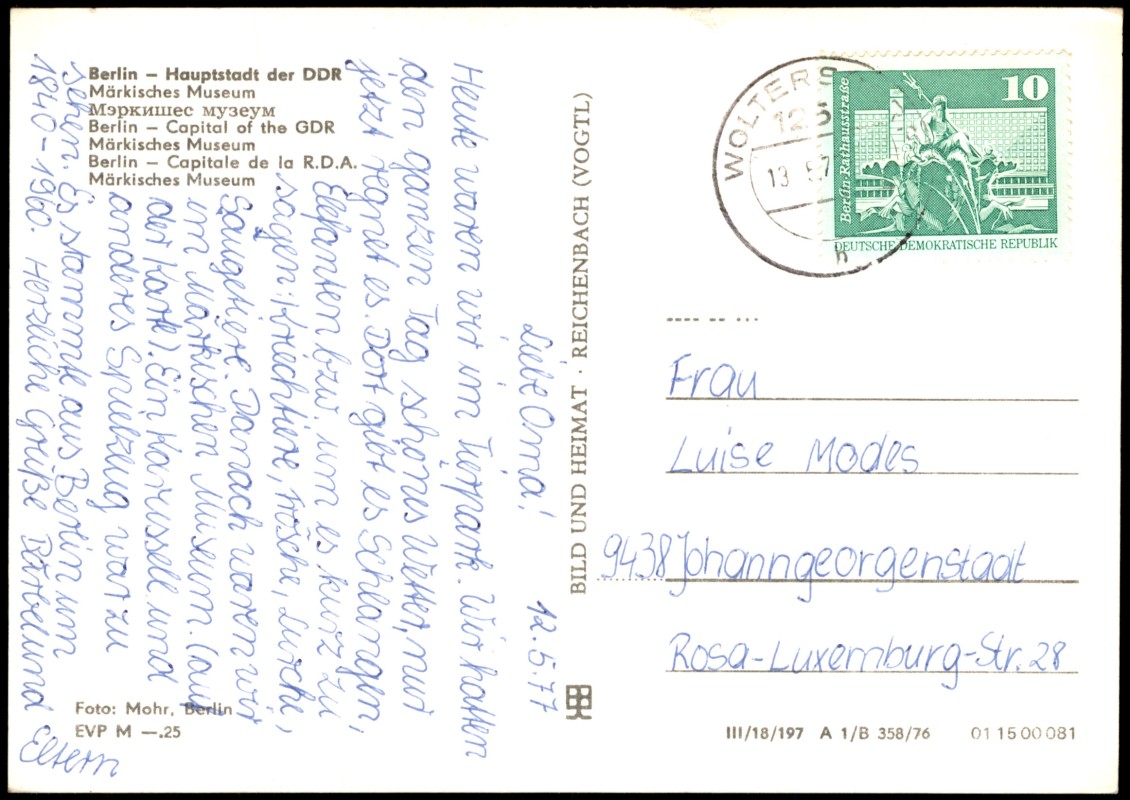 Berlin – Hauptstadt der DDR
Märkisches Museum
Мэркишес музеум
Berlin – Capital of the GDR
Märkisches Museum
Berlin – Capitale de la R.D.A.
Märkisches Museum
12.5.77
Liebe Oma!
Heute waren wir im Tierpark. Wir hatten
den ganzen Tag schönes Wetter, nur
jetzt regnet es. Dort gibt es Schlangen,
Elefanten bzw. um es kurz zu
sagen: Kriechtiere, Frösche, Lurche,
Säugetiere. Danach waren wir
im Märkischen Museum. (auf
der Karte). Ein Karussell und
anderes Spielzeug war zu
sehen. Es stammte aus Berlin um
1840-1960. Herzliche Grüße Bärbel und
Eltern
Foto: Mohr, Berlin
EVP M —.25
BILD UND HEIMAT · REICHENBACH (VOGTL)
WOLTERS
12
13. 5.7
h
10
Berlin·Rathausstraße
DEUTSCHE DEMOKRATISCHE REPUBLIK
Frau
Luise Modes
9438 Johanngeorgenstadt
Rosa-Luxemburg-Str. 28
III/18/197 A 1/B 358/76 01 15 00 081